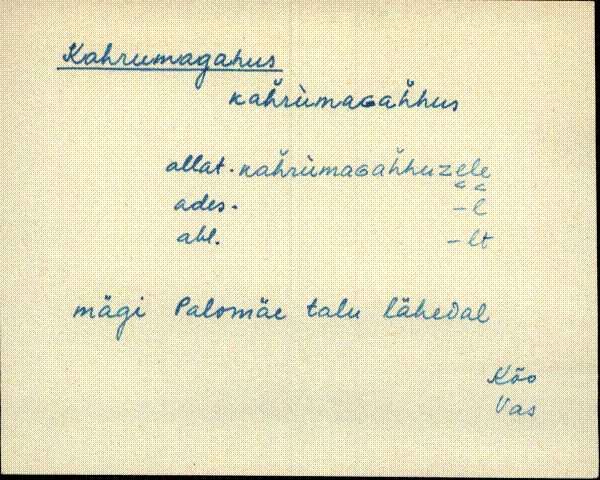 Kahrumagahus
kaȟrùmaɢaȟhus
allat. kaȟrùmaɢaȟhuzele
ades. -l
abl. -lt
mägi Palomäe talu lähedal
Kõo
Vas